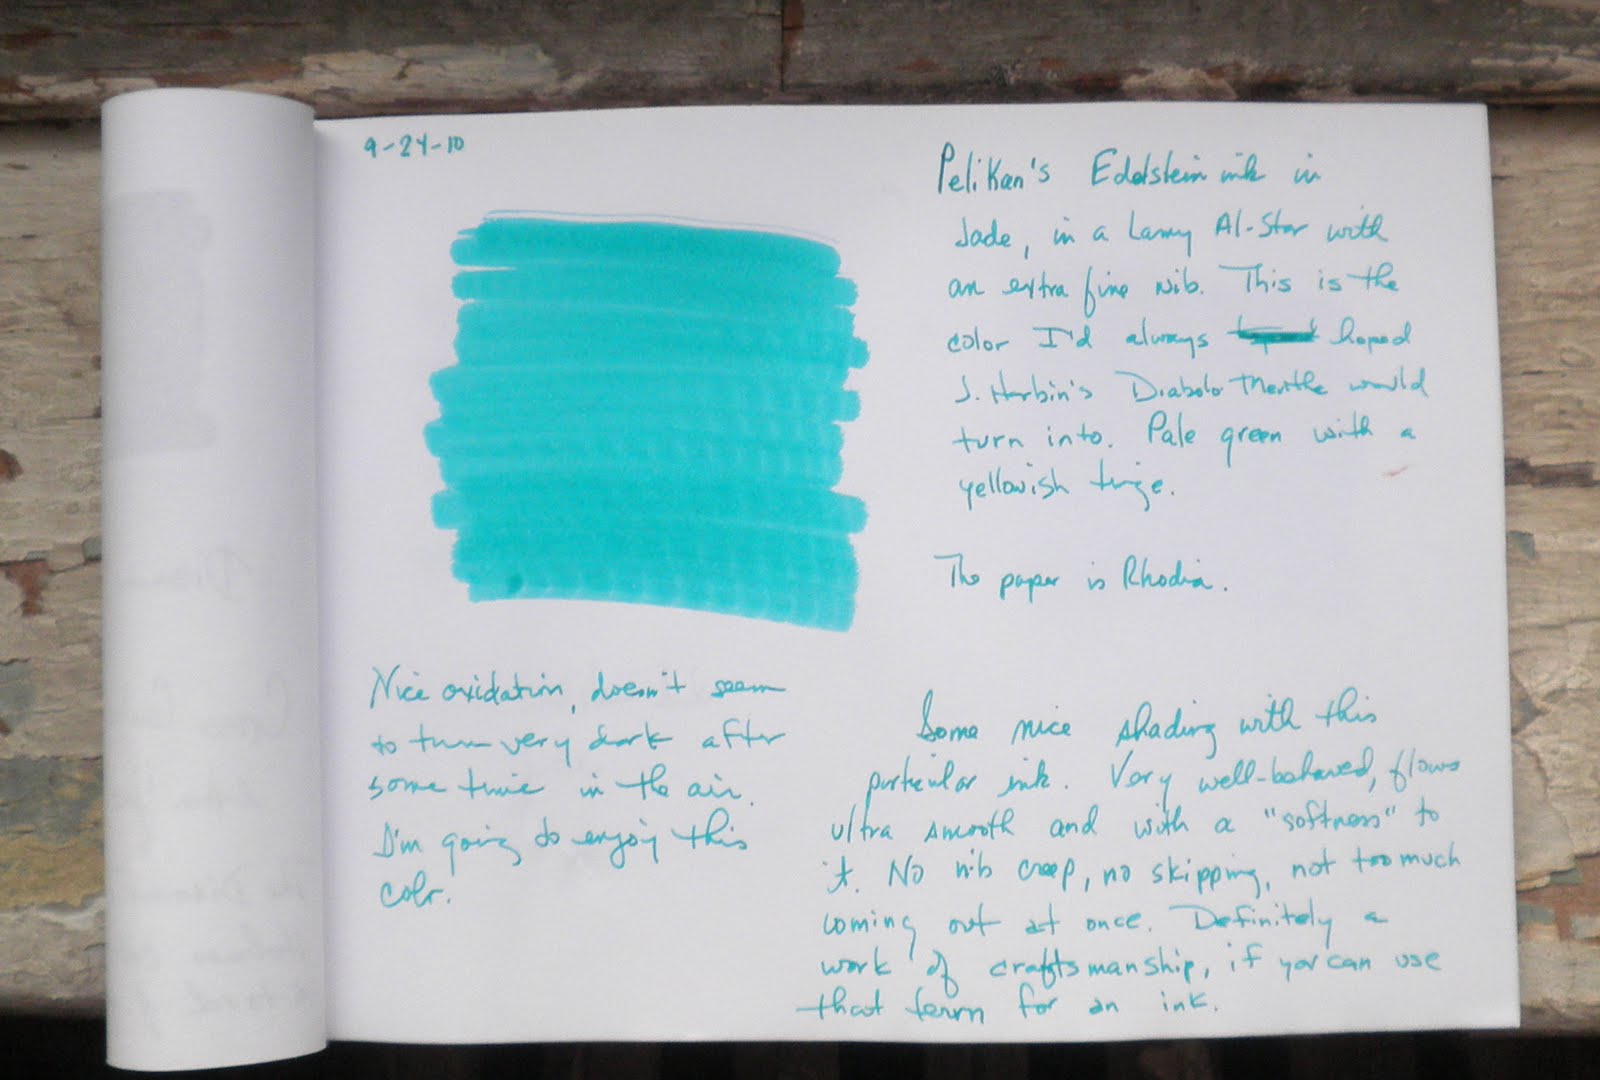 9-24-10
Pelikan's Edelstein ink in
Jade, in a Lamy Al-Star with
an extra fine nib. This is the
color I'd always hoped
J. Herbin's Diabolo Menthe would
turn into. Pale green with a
yellowish tinge.
The paper is Rhodia.
Nice oxidation, doesn't seem
to turn very dark after
some time in the air.
I'm going to enjoy this
color.
Some nice shading with this
particular ink. Very well-behaved, flows
ultra smooth and with a "softness" to
it. No nib creep, no skipping, not too much
coming out at once. Definitely a
work of craftsmanship, if you can use
that term for an ink.